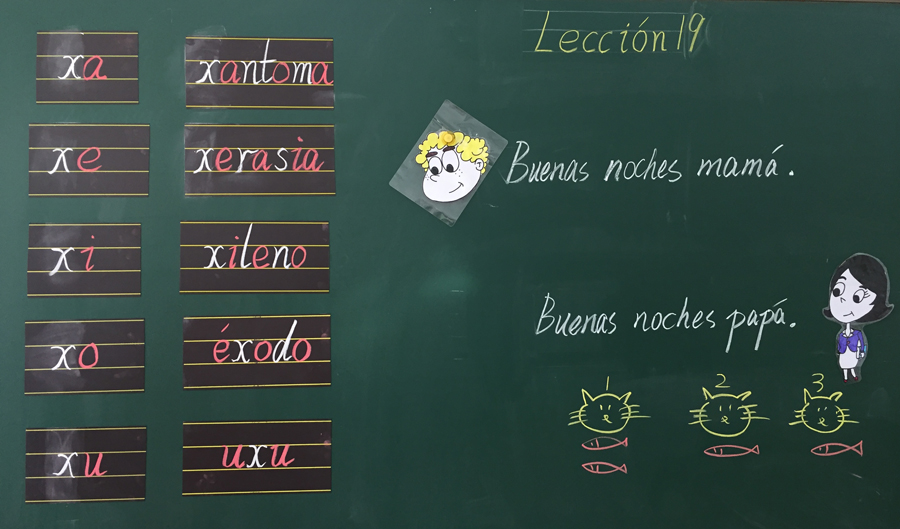 Lección 19
xa xantoma
xe xerasia
xi xileno
xo éxodo
xu uxu
Buenas noches mamá.
Buenas noches papá.
1 2 3